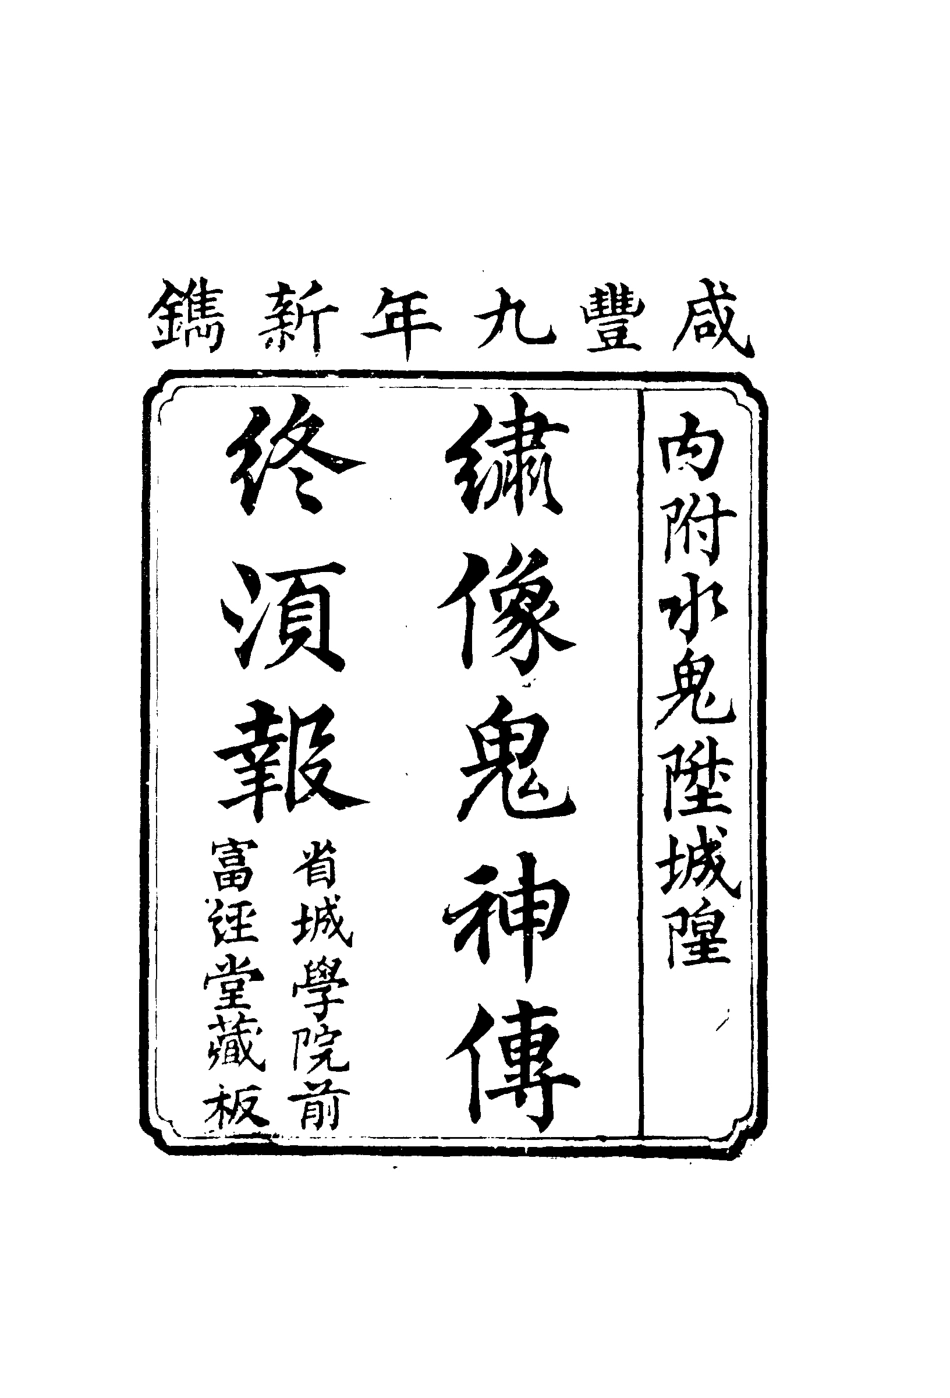 咸豐九年新鐫
內附水鬼陞城隍
繡像鬼神傳
終須報
省城學院前
富經堂藏板